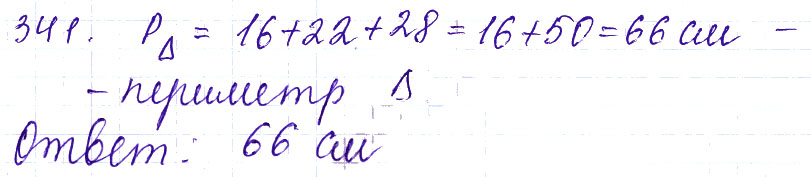 341. P△ = 16+22+28=16+50=66 см –
– периметр △
Ответ: 66 см